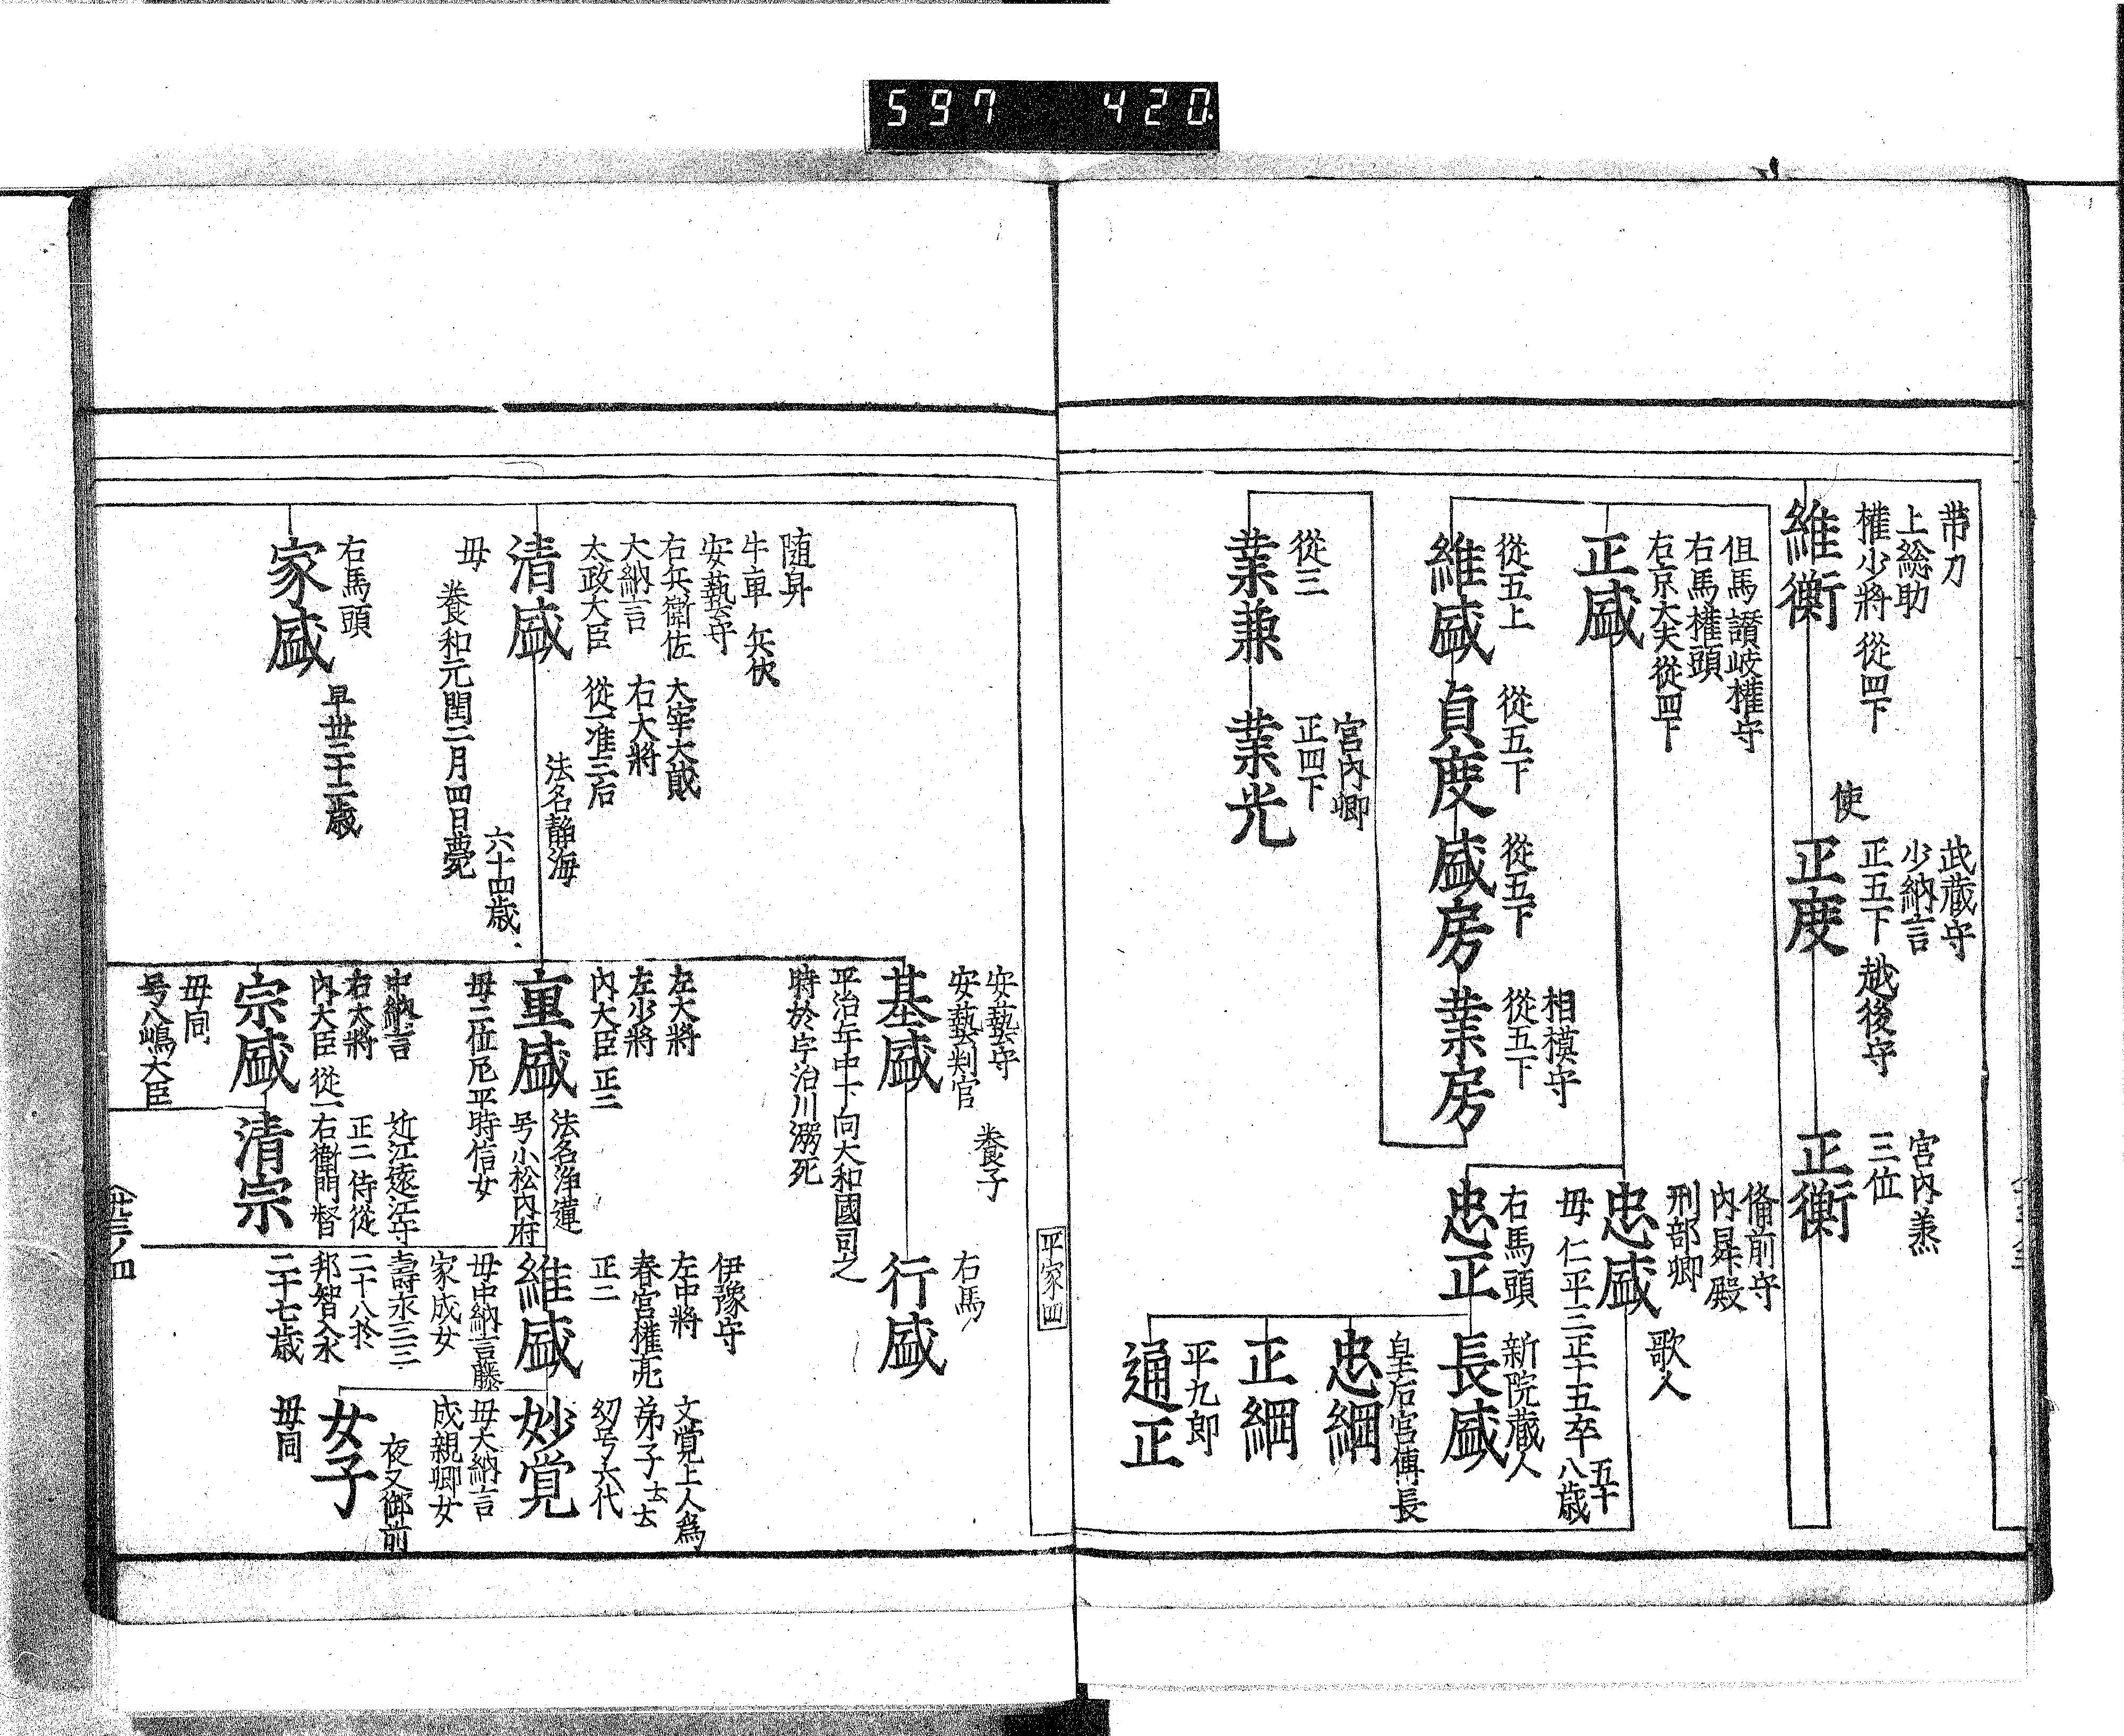 597 420
帯刀
上総助
権少將 從四下
維衡
使
武蔵守
少納言
正五下 越後守
正度
宮内
三位
正衡
但馬讃岐權守
右馬權頭
右京大夫從四下
正盛
備前守
内昇殿
刑部卿
忠盛
歌人
母 仁平三正十五卒 五十八歳
右馬頭
忠正
新院蔵人
長盛
皇后宮傅長
忠綱
正綱
平九郎
通正
從五上
維盛
從五下
貞度
從五下
盛房
相模守
從五下
業房
從三
業兼
宮内卿
正四下
業光
平家四
随身
牛車 兵仗
安藝守
右兵衛佐 大宰大貮
大納言 右大將
太政大臣 從一准三后
清盛
法名静海
母
養和元閏二月四日薨
六十四歳
右馬頭
家盛
早世二十二歳
安藝守
安藝判官
基盛
養子
平治年中下向大和國司之
時於宇治川溺死
右馬
行盛
左大將
左少將
内大臣 正二
重盛
法名浄蓮
号小松内府
母二位尼平時信女
伊豫守
左中將
春宮權亮
正二
維盛
母中納言藤
家成女
壽永三三
二十八於
邦智入水
二十七歳
文覚上人為
弟子去去
幼号六代
妙覚
母大納言
成親卿女
夜又御前
女子
母同
中納言
右大將
内大臣 從一
宗盛
母同
号八嶋大臣
近江遠江守
正二 侍從
右衛門督
清宗